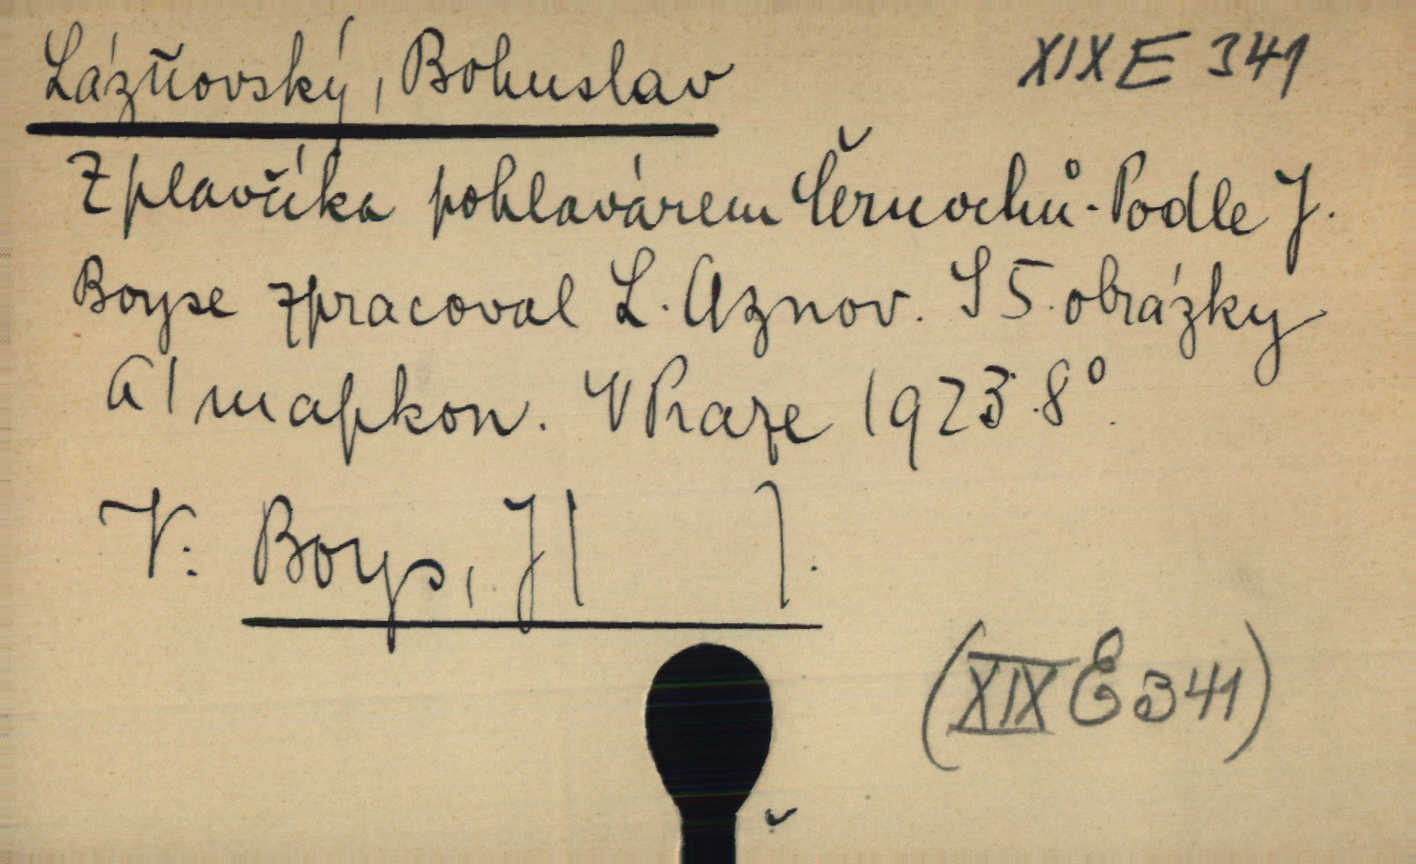 Lázňovský, Bohuslav XIX E 341
Z plavčíka pohlavárem Černochů. Podle J.
Boyse zpracoval L. Aznov. S 5 obrázky
a 1 mapkou. V Praze 1923. 8°.
V: Boys, J[ ].
(XIX E 341)